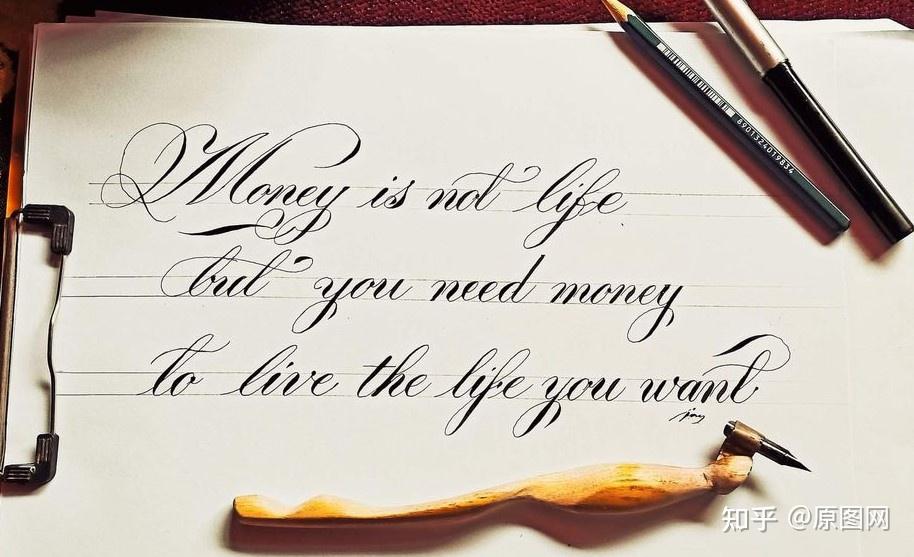 Money is not life
but you need money
to live the life you want
jay
8901324019834
知乎 @原图网